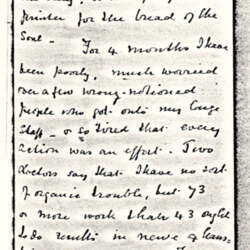 finister for the bread of the
Soul -
For 4 months I have
been poorly, much worried
over a few wrong-notioned
people who got onto my large
Staff - or so tired that every
action was an effort. Two
doctors say that I have no sort
of organic trouble, but 73
or more work than 43 ought
to do results in nerve